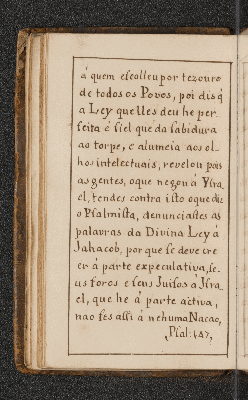 á quem escolleu por tezouro
de todos os Povos, poi dis q̃
a Ley que lles deu he per
feita é fiel que da sabidura
ao torpe, e alumeia aos ol_
hos intelectuais, revelou pois
as gentes, oque negou á Ysra_
el, tendes contra isto oque diz
o Psalmista, denunciastes as
palavras da Divina Ley á
Jahacob, por que se deve cre
er á parte expeculativa, se_
us foros e seus Juisos á Jsra_
el, que he á parte activa,
nao fes assi á nehuma Nacao,
Psal: 147,